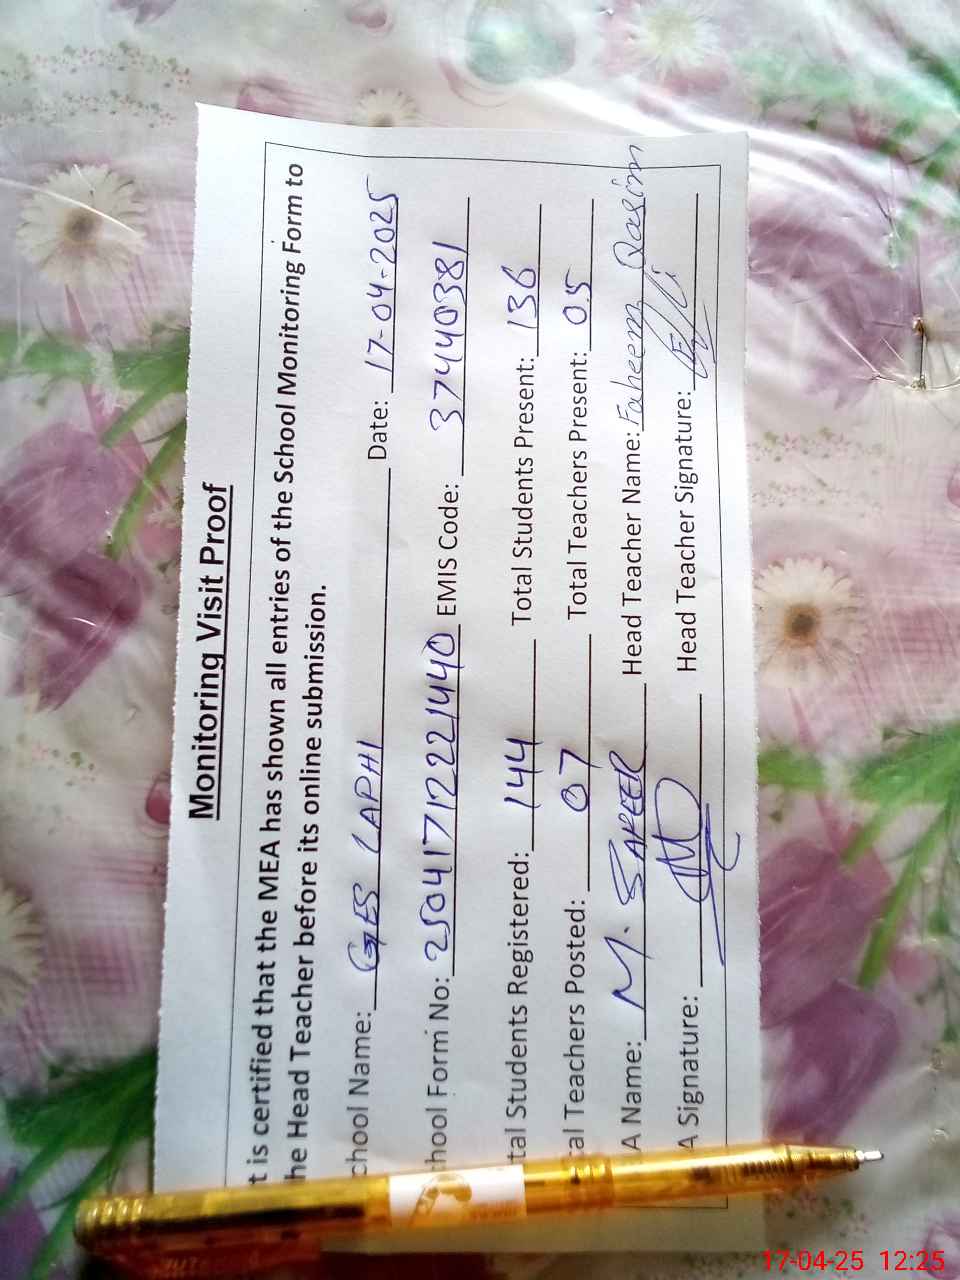 Monitoring Visit Proof
t is certified that the MEA has shown all entries of the School Monitoring Form to
he Head Teacher before its online submission.
chool Name: GES LAPHI Date: 17-04-2025
hool Form No: 2504171722221440 EMIS Code: 37440381
tal Students Registered: 144 Total Students Present: 136
al Teachers Posted: 07 Total Teachers Present: 05
A Name: M. SAFEER Head Teacher Name: Faheem Qasim
A Signature: Head Teacher Signature:
17-04-25 12:25